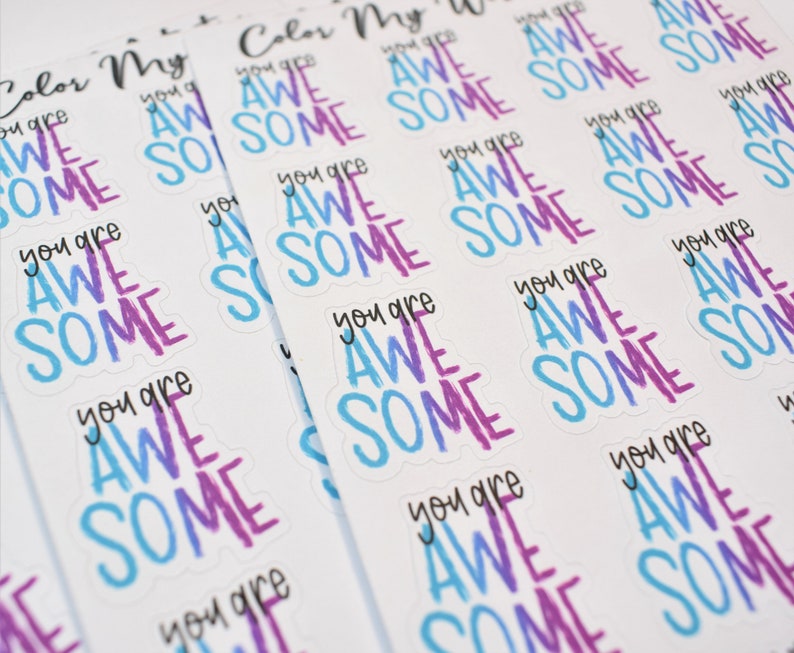 Color My
you are
AWE
SOME
you are
you are
AWE
SOME
you
you are
AWE
SOME
you are
Color My
you are
AWE
SOME
you are
AWE
SOME
you are
AWE
SOME
AWE
SOME
you are
AWE
SOME
you are
AWE
SOME
you are
AWE
SOME
you are
you are
AWE
SOME
you are
AWE
SOME
you are
AWE
you are
AWE
SOME
you are
AWE
SOME